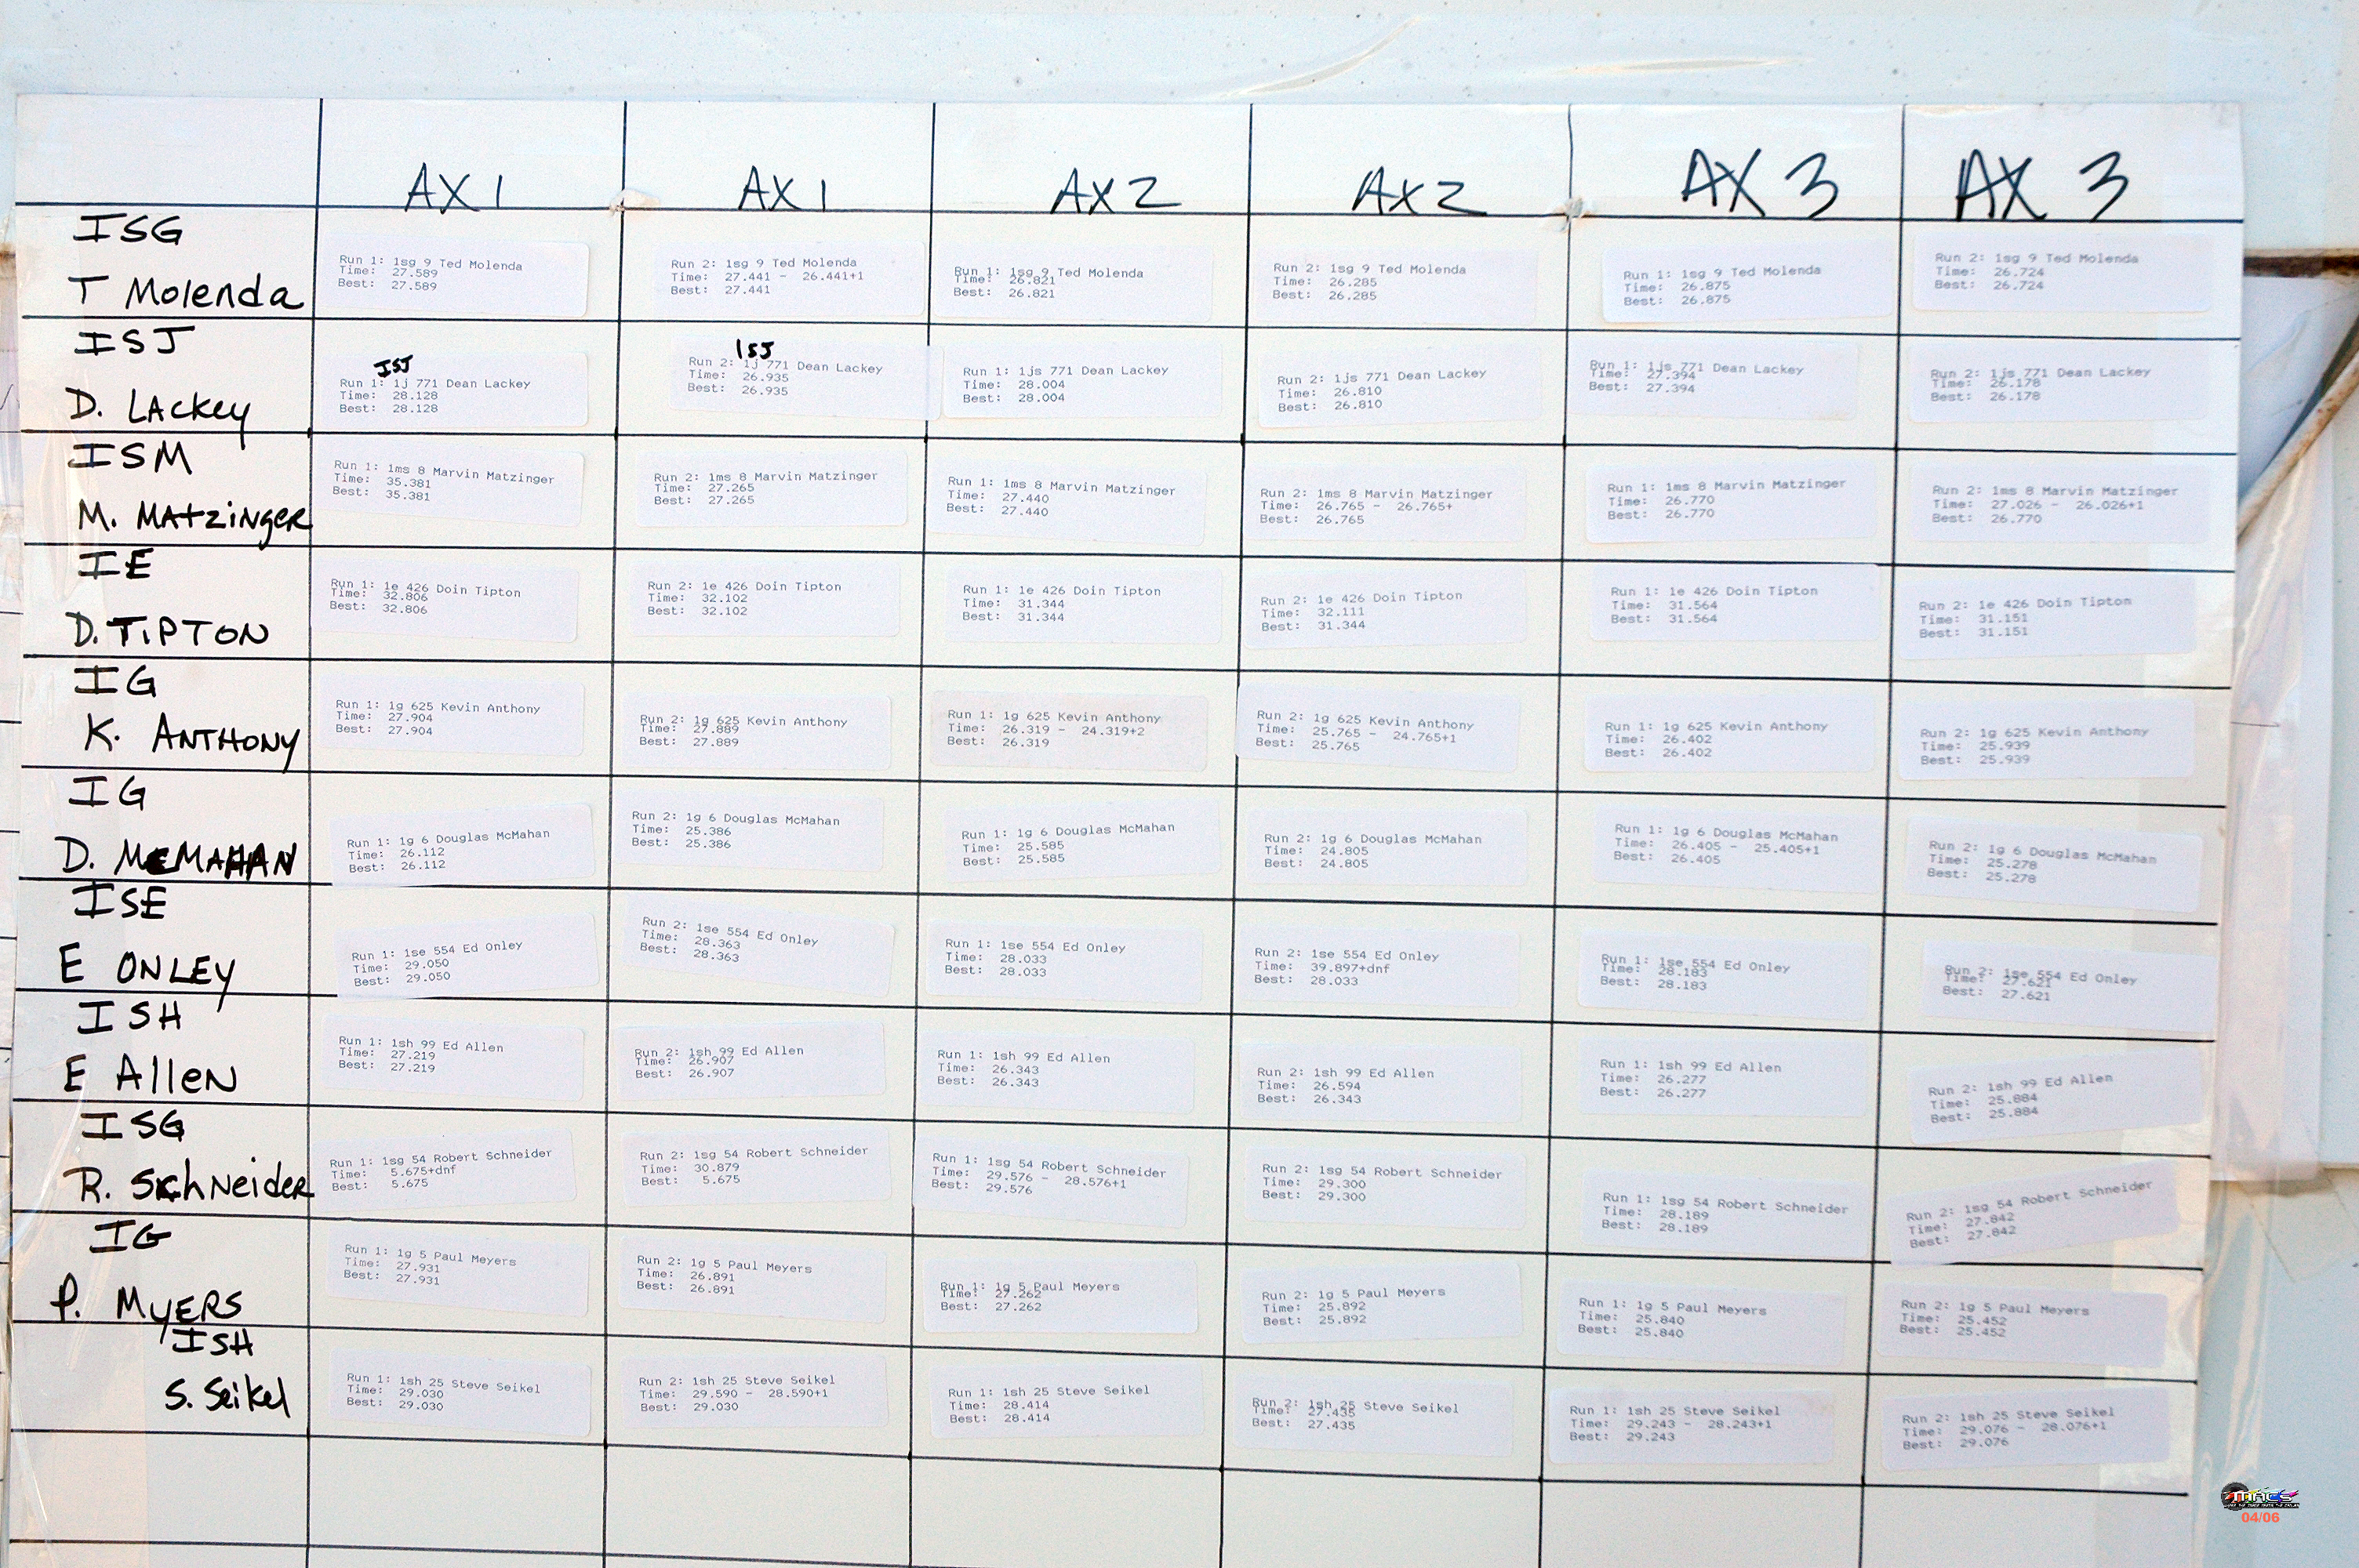 AX 1 AX 1 AX 2 AX 2 AX 3 AX 3
ISG
T Molenda
Run 1: 1sg 9 Ted Molenda
Time: 27.589
Best: 27.589
Run 2: 1sg 9 Ted Molenda
Time: 27.441 - 26.441+1
Best: 27.441
Run 1: 1sg 9 Ted Molenda
Time: 26.821
Best: 26.821
Run 2: 1sg 9 Ted Molenda
Time: 26.285
Best: 26.285
Run 1: 1sg 9 Ted Molenda
Time: 26.875
Best: 26.875
Run 2: 1sg 9 Ted Molenda
Time: 26.724
Best: 26.724
ISJ
D. LACKEY
ISJ
Run 1: 1j 771 Dean Lackey
Time: 28.128
Best: 28.128
ISJ
Run 2: 1j 771 Dean Lackey
Time: 26.935
Best: 26.935
Run 1: 1js 771 Dean Lackey
Time: 28.004
Best: 28.004
Run 2: 1js 771 Dean Lackey
Time: 26.810
Best: 26.810
Run 1: 1js 771 Dean Lackey
Time: 27.394
Best: 27.394
Run 2: 1js 771 Dean Lackey
Time: 26.178
Best: 26.178
ISM
M. MATZINGER
Run 1: 1ms 8 Marvin Matzinger
Time: 35.381
Best: 35.381
Run 2: 1ms 8 Marvin Matzinger
Time: 27.265
Best: 27.265
Run 1: 1ms 8 Marvin Matzinger
Time: 27.440
Best: 27.440
Run 2: 1ms 8 Marvin Matzinger
Time: 26.765 - 26.765+
Best: 26.765
Run 1: 1ms 8 Marvin Matzinger
Time: 26.770
Best: 26.770
Run 2: 1ms 8 Marvin Matzinger
Time: 27.026 - 26.026+1
Best: 26.770
IE
D. TIPTON
Run 1: 1e 426 Doin Tipton
Time: 32.806
Best: 32.806
Run 2: 1e 426 Doin Tipton
Time: 32.102
Best: 32.102
Run 1: 1e 426 Doin Tipton
Time: 31.344
Best: 31.344
Run 2: 1e 426 Doin Tipton
Time: 32.111
Best: 31.344
Run 1: 1e 426 Doin Tipton
Time: 31.564
Best: 31.564
Run 2: 1e 426 Doin Tipton
Time: 31.151
Best: 31.151
IG
K. ANTHONY
Run 1: 1g 625 Kevin Anthony
Time: 27.904
Best: 27.904
Run 2: 1g 625 Kevin Anthony
Time: 27.889
Best: 27.889
Run 1: 1g 625 Kevin Anthony
Time: 26.319 - 24.319+2
Best: 26.319
Run 2: 1g 625 Kevin Anthony
Time: 25.765 - 24.765+1
Best: 25.765
Run 1: 1g 625 Kevin Anthony
Time: 26.402
Best: 26.402
Run 2: 1g 625 Kevin Anthony
Time: 25.939
Best: 25.939
IG
D. McMAHAN
Run 1: 1g 6 Douglas McMahan
Time: 26.112
Best: 26.112
Run 2: 1g 6 Douglas McMahan
Time: 25.386
Best: 25.386
Run 1: 1g 6 Douglas McMahan
Time: 25.585
Best: 25.585
Run 2: 1g 6 Douglas McMahan
Time: 24.805
Best: 24.805
Run 1: 1g 6 Douglas McMahan
Time: 26.405 - 25.405+1
Best: 26.405
Run 2: 1g 6 Douglas McMahan
Time: 25.278
Best: 25.278
ISE
E ONLEY
Run 1: 1se 554 Ed Onley
Time: 29.050
Best: 29.050
Run 2: 1se 554 Ed Onley
Time: 28.363
Best: 28.363
Run 1: 1se 554 Ed Onley
Time: 28.033
Best: 28.033
Run 2: 1se 554 Ed Onley
Time: 39.897+dnf
Best: 28.033
Run 1: 1se 554 Ed Onley
Time: 28.183
Best: 28.183
Run 2: 1se 554 Ed Onley
Time: 27.621
Best: 27.621
ISH
E Allen
Run 1: 1sh 99 Ed Allen
Time: 27.219
Best: 27.219
Run 2: 1sh 99 Ed Allen
Time: 26.907
Best: 26.907
Run 1: 1sh 99 Ed Allen
Time: 26.343
Best: 26.343
Run 2: 1sh 99 Ed Allen
Time: 26.594
Best: 26.343
Run 1: 1sh 99 Ed Allen
Time: 26.277
Best: 26.277
Run 2: 1sh 99 Ed Allen
Time: 25.884
Best: 25.884
ISG
R. Schneider
Run 1: 1sg 54 Robert Schneider
Time: 5.675+dnf
Best: 5.675
Run 2: 1sg 54 Robert Schneider
Time: 30.879
Best: 5.675
Run 1: 1sg 54 Robert Schneider
Time: 29.576 - 28.576+1
Best: 29.576
Run 2: 1sg 54 Robert Schneider
Time: 29.300
Best: 29.300
Run 1: 1sg 54 Robert Schneider
Time: 28.189
Best: 28.189
Run 2: 1sg 54 Robert Schneider
Time: 27.842
Best: 27.842
IG
P. MYERS
Run 1: 1g 5 Paul Meyers
Time: 27.931
Best: 27.931
Run 2: 1g 5 Paul Meyers
Time: 26.891
Best: 26.891
Run 1: 1g 5 Paul Meyers
Time: 27.262
Best: 27.262
Run 2: 1g 5 Paul Meyers
Time: 25.892
Best: 25.892
Run 1: 1g 5 Paul Meyers
Time: 25.840
Best: 25.840
Run 2: 1g 5 Paul Meyers
Time: 25.452
Best: 25.452
ISH
S. Seikel
Run 1: 1sh 25 Steve Seikel
Time: 29.030
Best: 29.030
Run 2: 1sh 25 Steve Seikel
Time: 29.590 - 28.590+1
Best: 29.030
Run 1: 1sh 25 Steve Seikel
Time: 28.414
Best: 28.414
Run 2: 1sh 25 Steve Seikel
Time: 27.435
Best: 27.435
Run 1: 1sh 25 Steve Seikel
Time: 29.243 - 28.243+1
Best: 29.243
Run 2: 1sh 25 Steve Seikel
Time: 29.076 - 28.076+1
Best: 29.076
04/06